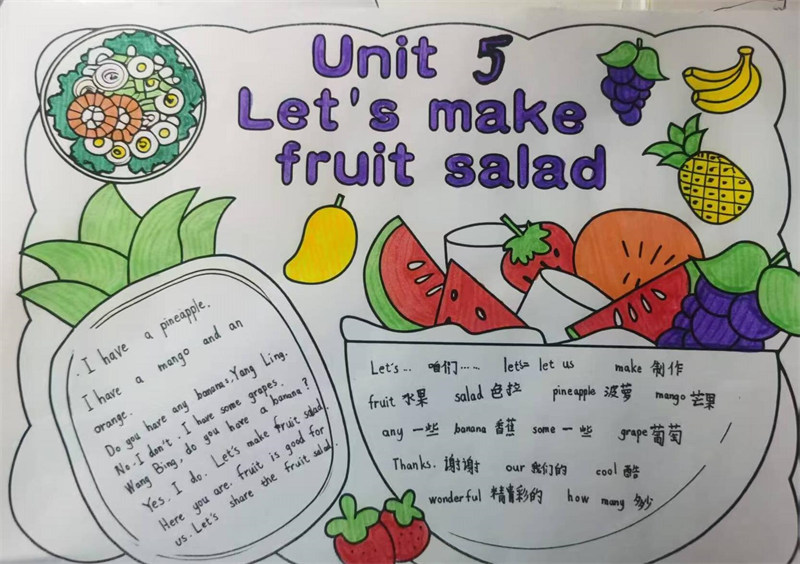 Unit 5
Let's make
fruit salad
. I have a pineapple.
I have a mango and an
orange.
Do you have any bananas, Yang Ling.
No. I don't. I have some grapes.
Wang Bing. do you have a banana?
Yes. I do. Let's make fruit salad.
Here you are. fruit is good for
us. Let's share the fruit salad.
Let's... 咱们…… let's= let us make 制作
fruit 水果 salad 色拉 pineapple 菠萝 mango 芒果
any 一些 banana 香蕉 some 一些 grape 葡萄
Thanks. 谢谢 our 我们的 cool 酷
wonderful 精彩的 how many 多少